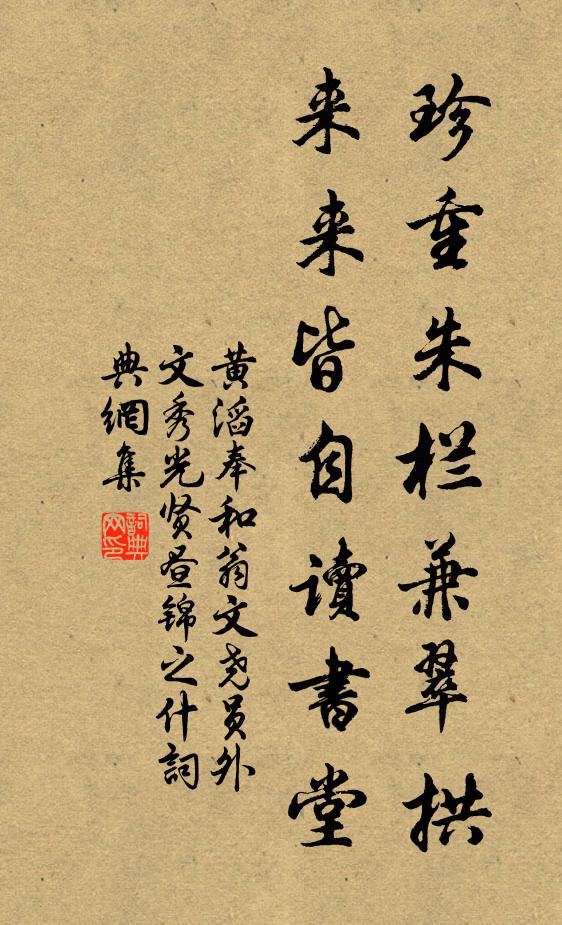 珍重朱栏兼翠拱
来来皆自读書堂
黄滔奉和翁文尧员外
文秀光贤昼锦之什詞
典網集
詞典
网印